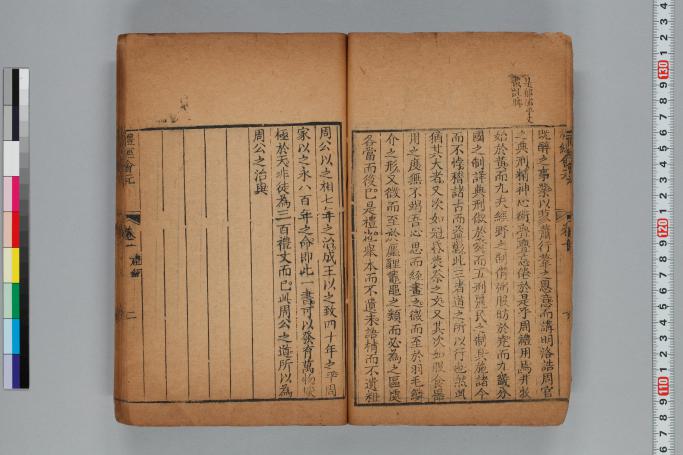 既醉之事舉以
行葦之
忠意而講明洛誥周官
之典刑精神心術
忘倦於是乎周禮用焉井牧
始於黃而九夫經野之制備弼服昉於堯而九畿分
國之制詳典刑倣於
而五刑麗民之制具施諸今
而不悖稽諸古而益彰此三者道之所以行也然此
猶其大者又次如冠昏喪祭之文又其次如服食器
用之度無不竭吾心思而經畫之微而至於羽毛鱗
介之形又微而至於
黿鼉之類而必為之區處
各當而後已是禮也舉本而不遺末語精而不遺粗
周公以之相七年之治成王以之致四十年之平周
家以之永八百年之命即此一書可以發育萬物峻
極於天非徒為三百禮文而已此周公之道所以為
周公之治與
禮經會元
卷一
二